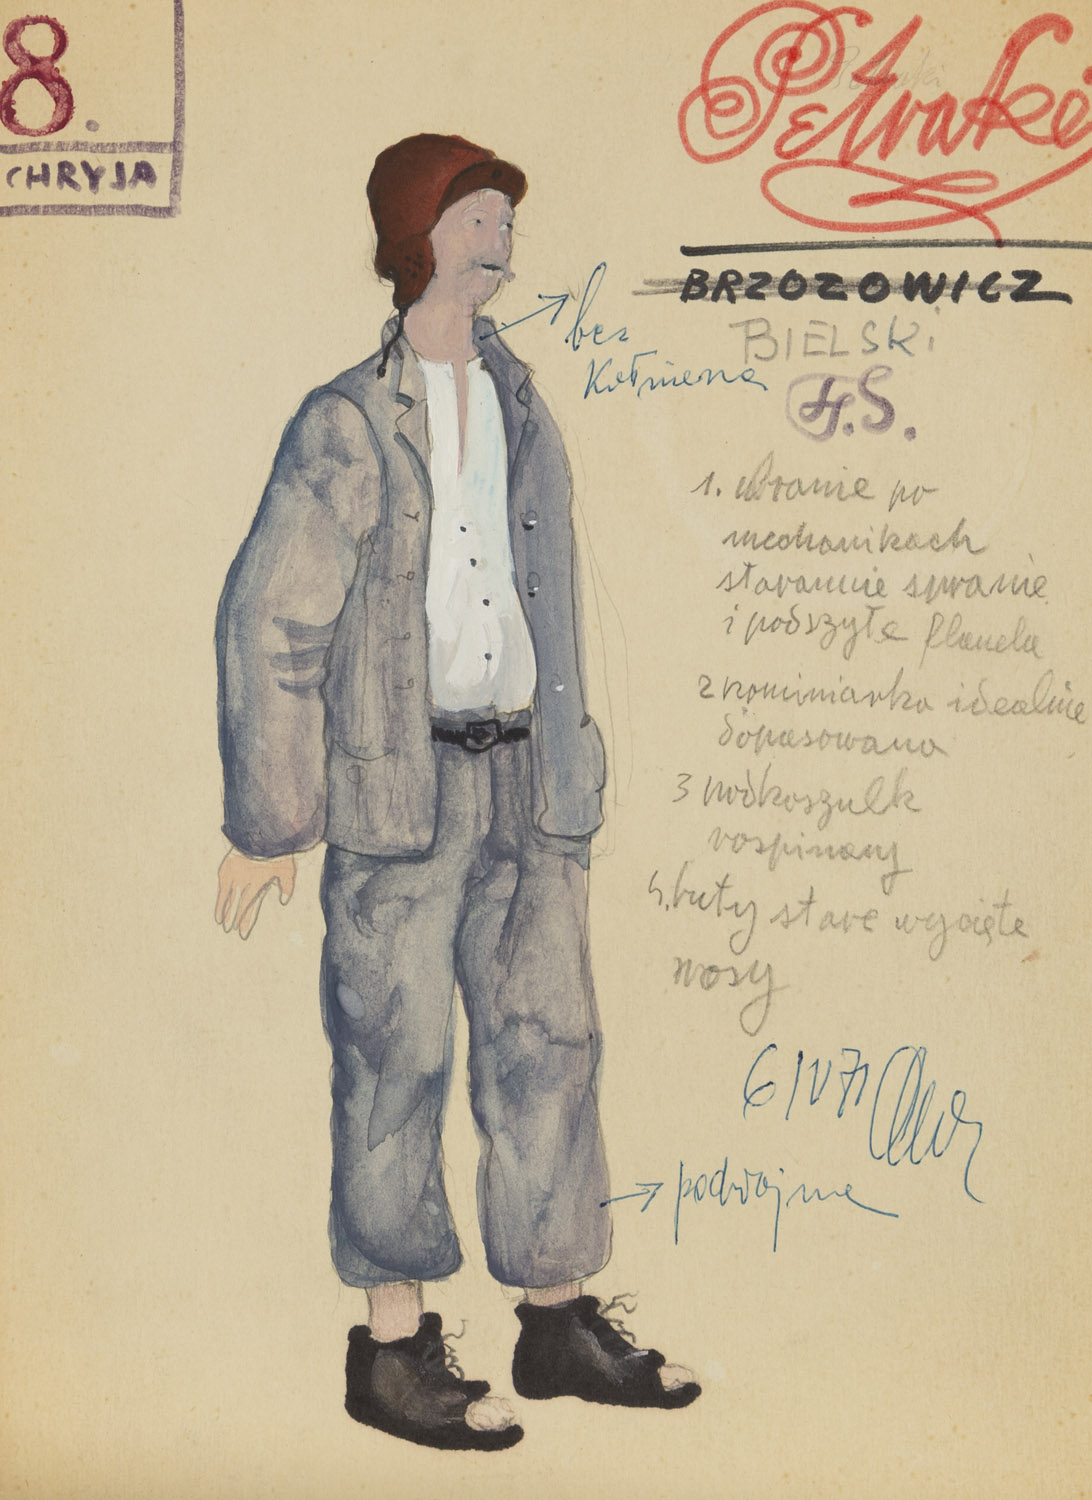 8.
CHRYJA
Petrycki
BRZOZOWICZ
BIELSKI
H.S.
bez
Kołnierza
1. ubranie po
mechanikach
starannie sprane
i podszyte flanelą
2 kominiarka idealnie
dopasowana
3 podkoszulk
rospinany
4. buty stare wycięte
nosy
6/IV 71
podwójne